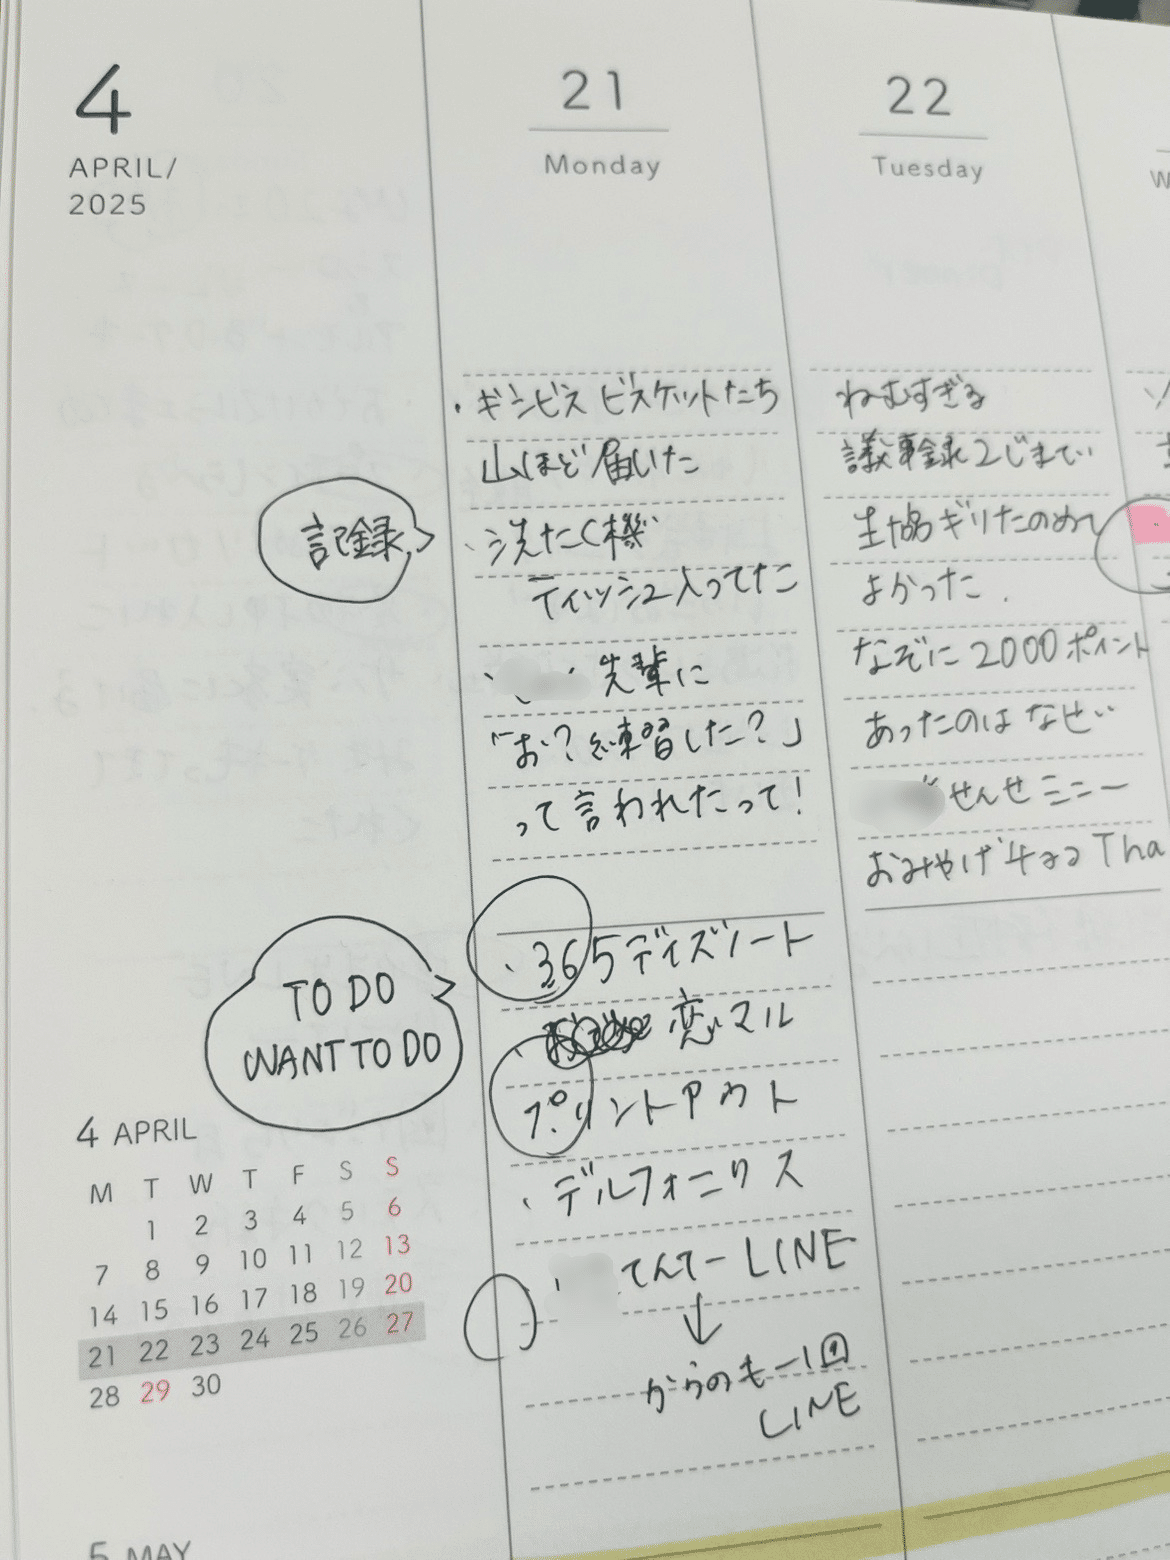 4
APRIL/
2025
21
Monday
・ギンビス ビスケットたち
山ほど届いた
・洗たく機
ティッシュ入ってた
・先輩に
「お?練習した?」
って言われたって!
記録
・365デイズノート
・恋マル
プリントアウト
・デルフォニクス
・てんてーLINE
↓
からのもー1回
LINE
TO DO
WANT TO DO
22
Tuesday
ねむすぎる
議事録2じまでい
生協ギリたのめて
よかった.
なぞに2000ポイント
あったのはなぜい
せんせミニー
おみやげチョコ Tha
W
4 APRIL
M T W T F S S
1 2 3 4 5 6
7 8 9 10 11 12 13
14 15 16 17 18 19 20
21 22 23 24 25 26 27
28 29 30
5 MAY